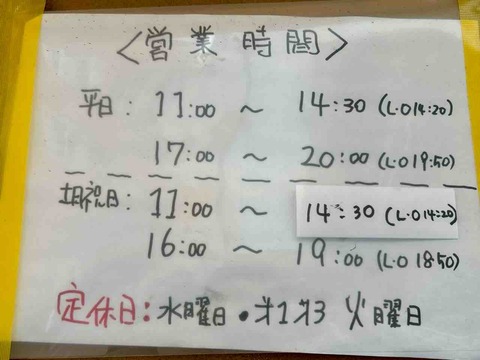 〈営業時間〉
平日: 11:00 ~ 14:30 (L·O 14:20)
17:00 ~ 20:00 (L·O 19:50)
土日祝日: 11:00 ~ 14:30 (L·O 14:20)
16:00 ~ 19:00 (L·O 18:50)
定休日: 水曜日・才1才3 火曜日